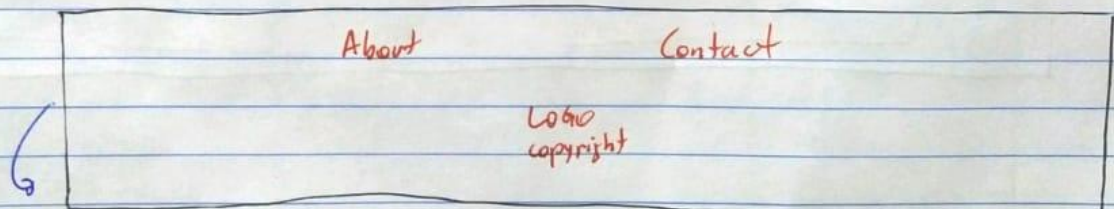 About Contact
LOGO
copyright